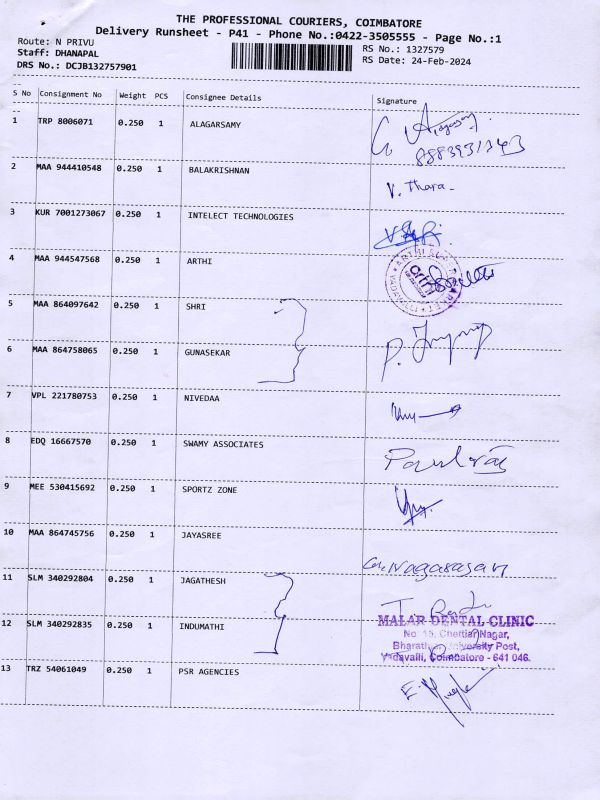 THE PROFESSIONAL COURIERS, COIMBATORE
Delivery Runsheet - P41 - Phone No.:0422-3505555 - Page No.:1
Route: N PRIVU
RS No.: 1327579
Staff: DHANAPAL
RS Date: 24-Feb-2024
DRS No.: DCJB132757901
S No Consignment No Weight PCS Consignee Details Signature
1 TRP 8006071 0.250 1 ALAGARSAMY
8883931243
2 MAA 944410548 0.250 1 BALAKRISHNAN V. Thara
3 KUR 7001273067 0.250 1 INTELECT TECHNOLOGIES
4 MAA 944547568 0.250 1 ARTHI
arthi
5 MAA 864097642 0.250 1 SHRI
6 MAA 864758065 0.250 1 GUNASEKAR
7 VPL 221780753 0.250 1 NIVEDAA
8 EDQ 16667570 0.250 1 SWAMY ASSOCIATES
9 MEE 530415692 0.250 1 SPORTZ ZONE
10 MAA 864745756 0.250 1 JAYASREE
Nagarasan
11 SLM 340292804 0.250 1 JAGATHESH
12 SLM 340292835 0.250 1 INDUMATHI
MALAR DENTAL CLINIC
No: 15, Chettiar Nagar,
Bharathiyar University Post,
Vadavalli, Coimbatore - 641 046.
13 TRZ 54061049 0.250 1 PSR AGENCIES